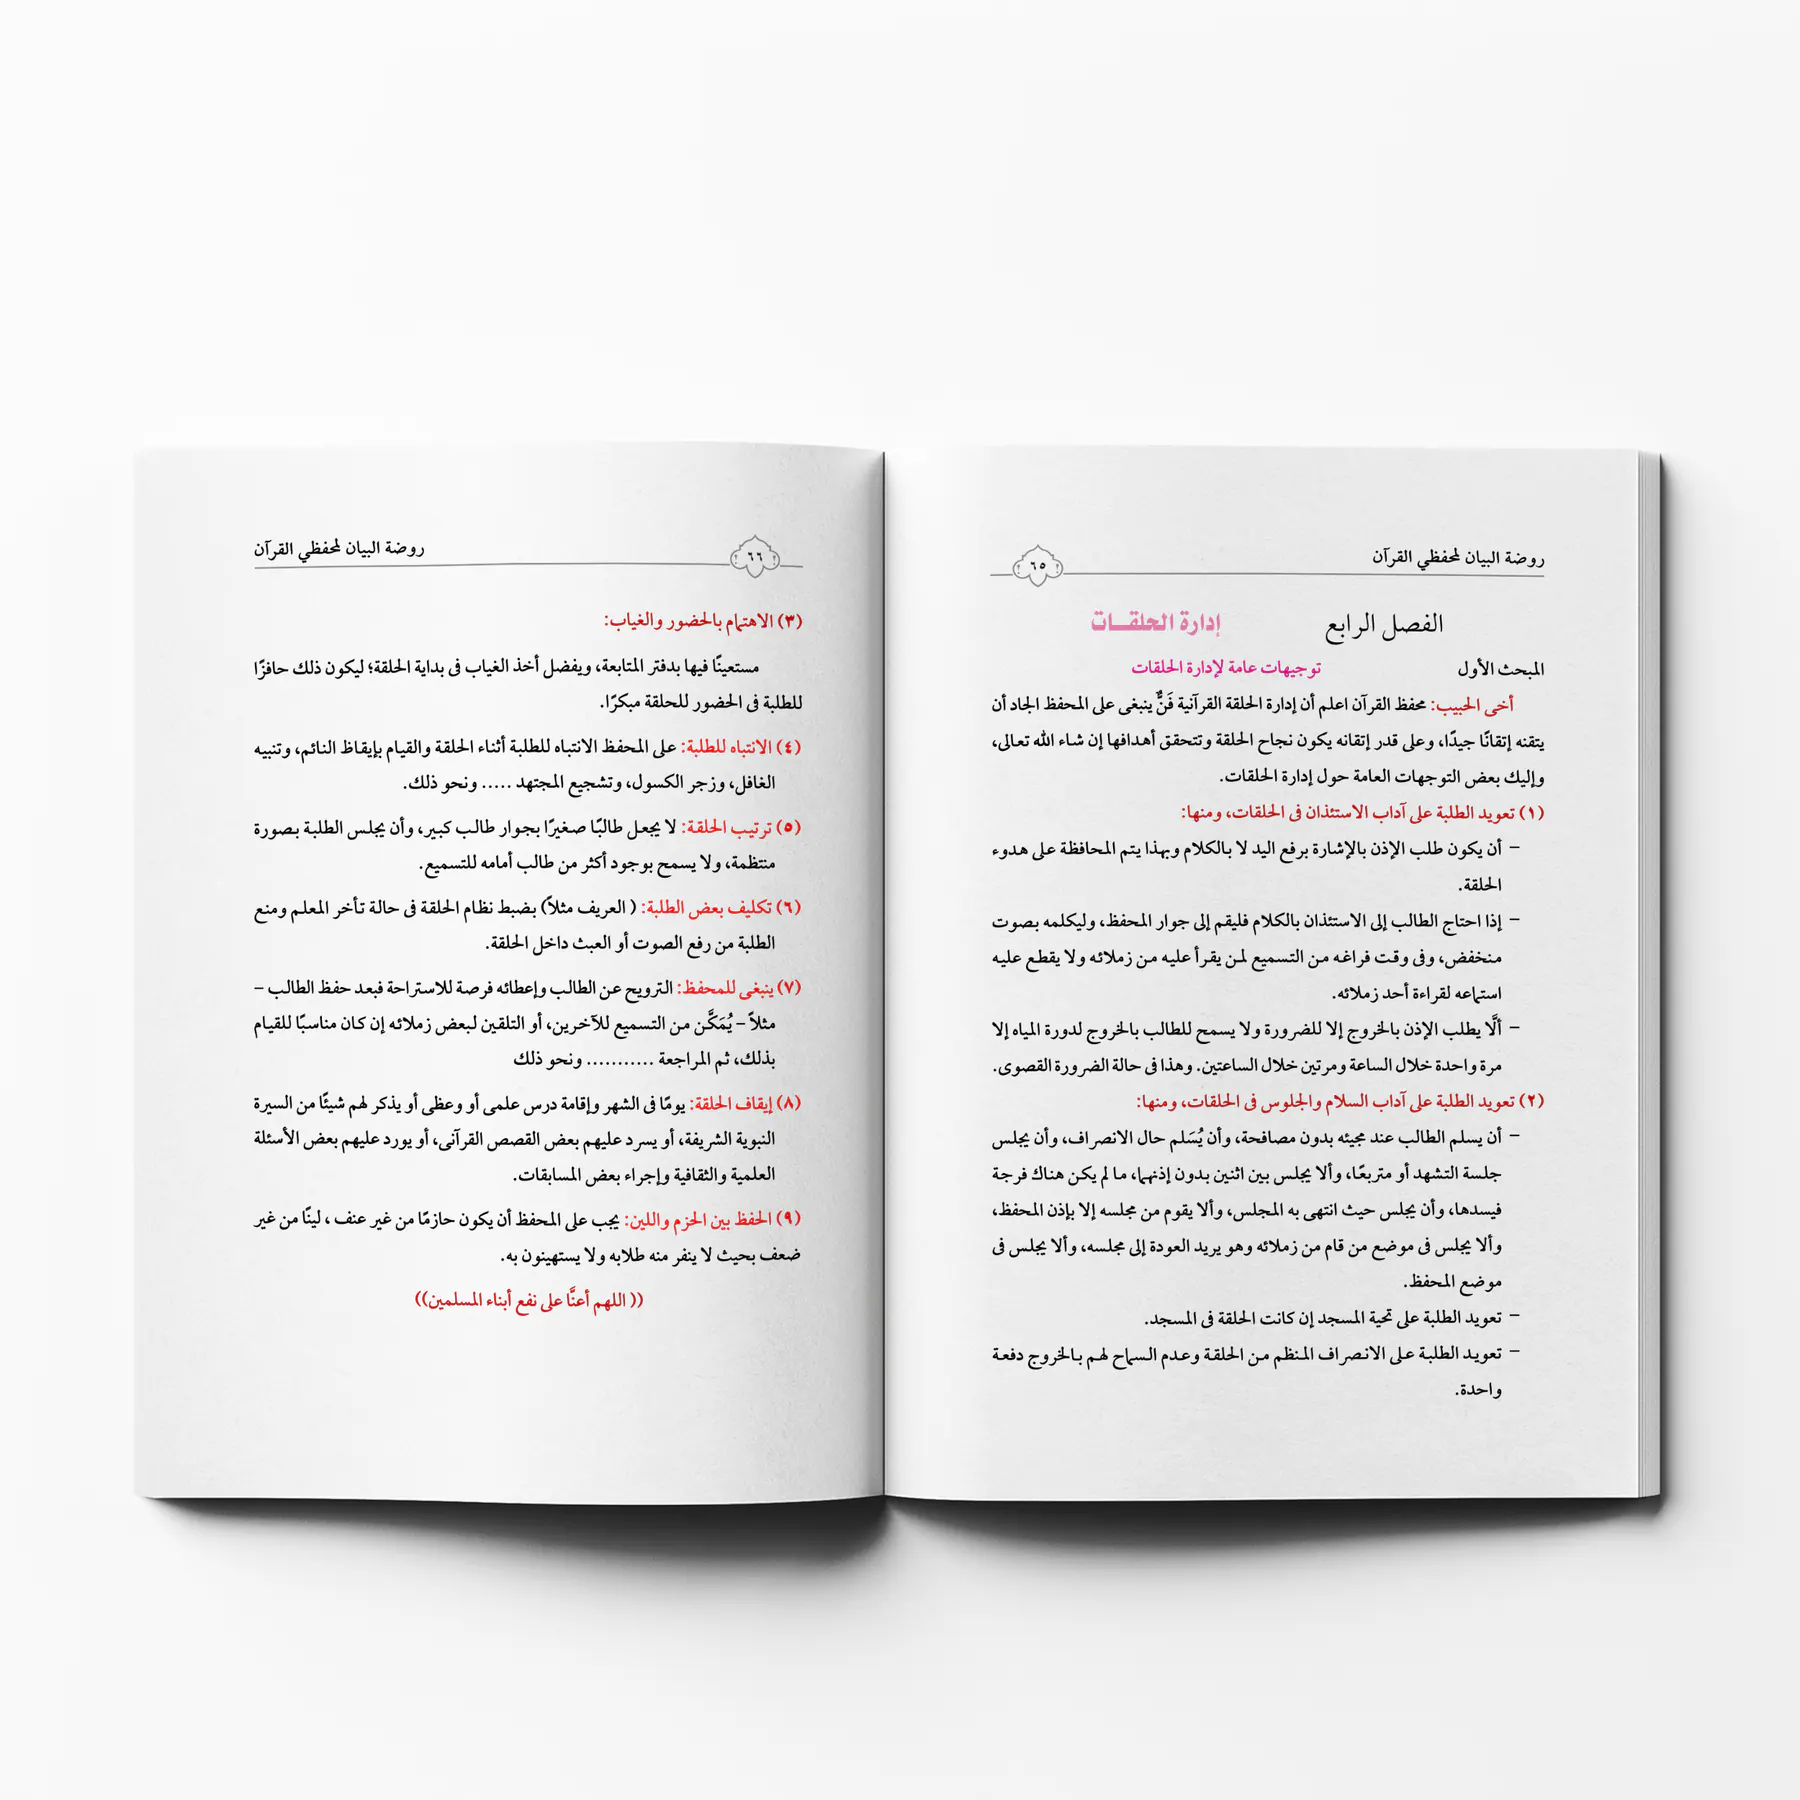 روضة البيان لمحفظي القرآن
٦٥
الفصل الرابع إدارة الحلقـات
المبحث الأول توجيهات عامة لإدارة الحلقات
أخى الحبيب: محفظ القرآن اعلم أن إدارة الحلقة القرآنية فَنٌّ ينبغى على المحفظ الجاد أن
يتقنه إتقانًا جيدًا، وعلى قدر إتقانه يكون نجاح الحلقة وتتحقق أهدافها إن شاء الله تعالى،
وإليك بعض التوجهات العامة حول إدارة الحلقات.
(١) تعويد الطلبة على آداب الاستئذان فى الحلقات، ومنها:
– أن يكون طلب الإذن بالإشارة برفع اليد لا بالكلام وبهذا يتم المحافظة على هدوء
الحلقة.
– إذا احتاج الطالب إلى الاستئذان بالكلام فليقم إلى جوار المحفظ، وليكلمه بصوت
منخفض، وفى وقت فراغه من التسميع لمن يقرأ عليه من زملائه ولا يقطع عليه
استماعه لقراءة أحد زملائه.
– ألَّا يطلب الإذن بالخروج إلا للضرورة ولا يسمح للطالب بالخروج لدورة المياه إلا
مرة واحدة خلال الساعة ومرتين خلال الساعتين. وهذا فى حالة الضرورة القصوى.
(٢) تعويد الطلبة على آداب السلام والجلوس فى الحلقات، ومنها:
– أن يسلم الطالب عند مجيئه بدون مصافحة، وأن يُسَلم حال الانصراف، وأن يجلس
جلسة التشهد أو متربعًا، وألا يجلس بين اثنين بدون إذنهما، ما لم يكن هناك فرجة
فيسدها، وأن يجلس حيث انتهى به المجلس، وألا يقوم من مجلسه إلا بإذن المحفظ،
وألا يجلس فى موضع من قام من زملائه وهو يريد العودة إلى مجلسه، وألا يجلس فى
موضع المحفظ.
– تعويد الطلبة على تحية المسجد إن كانت الحلقة فى المسجد.
– تعويد الطلبة على الانصراف المنظم من الحلقة وعدم السماح لهم بالخروج دفعة
واحدة.
٦٦
روضة البيان لمحفظي القرآن
(٣) الاهتمام بالحضور والغياب:
مستعينًا فيها بدفتر المتابعة، ويفضل أخذ الغياب فى بداية الحلقة؛ ليكون ذلك حافزًا
للطلبة فى الحضور للحلقة مبكرًا.
(٤) الانتباه للطلبة: على المحفظ الانتباه للطلبة أثناء الحلقة والقيام بإيقاظ النائم، وتنبيه
الغافل، وزجر الكسول، وتشجيع المجتهد ..... ونحو ذلك.
(٥) ترتيب الحلقة: لا يجعل طالبًا صغيرًا بجوار طالب كبير، وأن يجلس الطلبة بصورة
منتظمة، ولا يسمح بوجود أكثر من طالب أمامه للتسميع.
(٦) تكليف بعض الطلبة: ( العريف مثلاً) بضبط نظام الحلقة فى حالة تأخر المعلم ومنع
الطلبة من رفع الصوت أو العبث داخل الحلقة.
(٧) ينبغى للمحفظ: الترويح عن الطالب وإعطائه فرصة للاستراحة فبعد حفظ الطالب –
مثلاً – يُمَكَّن من التسميع للآخرين، أو التلقين لبعض زملائه إن كان مناسبًا للقيام
بذلك، ثم المراجعة ........... ونحو ذلك
(٨) إيقاف الحلقة: يومًا فى الشهر وإقامة درس علمى أو وعظى أو يذكر لهم شيئًا من السيرة
النبوية الشريفة، أو يسرد عليهم بعض القصص القرآنى، أو يورد عليهم بعض الأسئلة
العلمية والثقافية وإجراء بعض المسابقات.
(٩) الحفظ بين الحزم واللين: يجب على المحفظ أن يكون حازمًا من غير عنف ، لينًا من غير
ضعف بحيث لا ينفر منه طلابه ولا يستهينون به.
(( اللهم أعنَّا على نفع أبناء المسلمين))